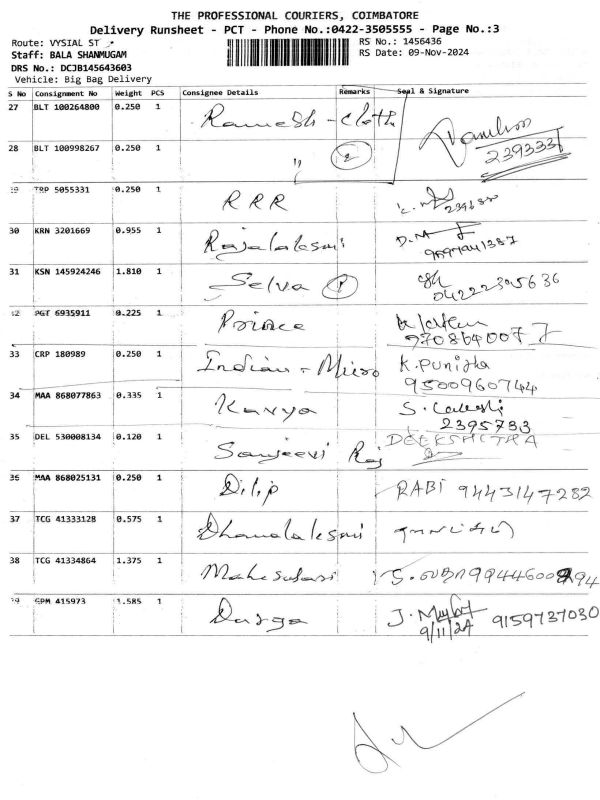 THE PROFESSIONAL COURIERS, COIMBATORE
Delivery Runsheet - PCT - Phone No.:0422-3505555 - Page No.:3
Route: VYSIAL ST
RS No.: 1456436
Staff: BALA SHANMUGAM
RS Date: 09-Nov-2024
DRS No.: DCJB145643603
Vehicle: Big Bag Delivery
S No Consignment No Weight PCS Consignee Details Remarks Seal & Signature
27 BLT 100264800 0.250 1 Ramesh - cloth
28 BLT 100998267 0.250 1 " 2 2393331
29 TRP 5055331 0.250 1 RRR
30 KRN 3201669 0.955 1 Rajalakshmi D.M
31 KSN 145924246 1.810 1 Selva
32 PGT 6935911 0.225 1 Prince
33 CRP 180989 0.250 1 Indian - Micro K. Punitha
9500960744
34 MAA 868077863 0.335 1 Kavya S.
2395733
35 DEL 530008134 0.120 1 Sanjeevi Raj DEEKSHITRA
36 MAA 868025131 0.250 1 Dilip RABI 9443147282
37 TCG 41333128 0.575 1 Dhanalakshmi
38 TCG 41334864 1.375 1 S.
39 GPM 415973 1.585 1 Durga J. 9159737030
9/11/24